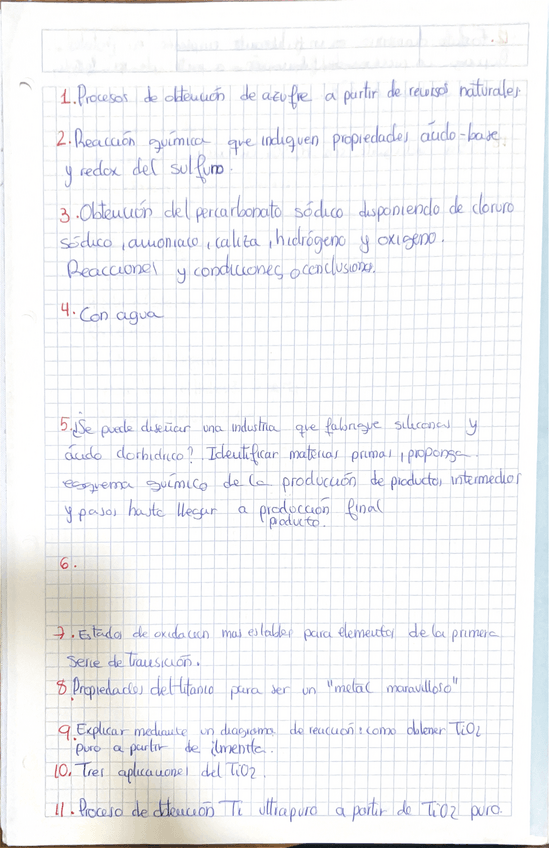 1. Procesos de obtención de azufre a partir de recursos naturales
2. Reacción química que indiquen propiedades ácido-base
y redox del sulfuro.
3. Obtención del percarbonato sódico disponiendo de cloruro
sódico, amoniaco, caliza, hidrógeno y oxigeno.
Reacciones y condiciones o conclusiones.
4. Con agua
5. ¿Se puede diseñar una industria que fabrique siliconas y
ácido clorhídrico? Identificar materias primas, proponga
esquema químico de la producción de productos intermedios
y pasos hasta llegar a producción final
producto.
6.
7. Estados de oxidación mas estables para elementos de la primera
serie de transición.
8. Propiedades del titanio para ser un "metal maravilloso"
9. Explicar mediante un diagrama de reacción: como obtener TiO2
puro a partir de ilmenita.
10. Tres aplicaciones del TiO2.
11. Proceso de obtención Ti ultrapuro a partir de TiO2 puro.